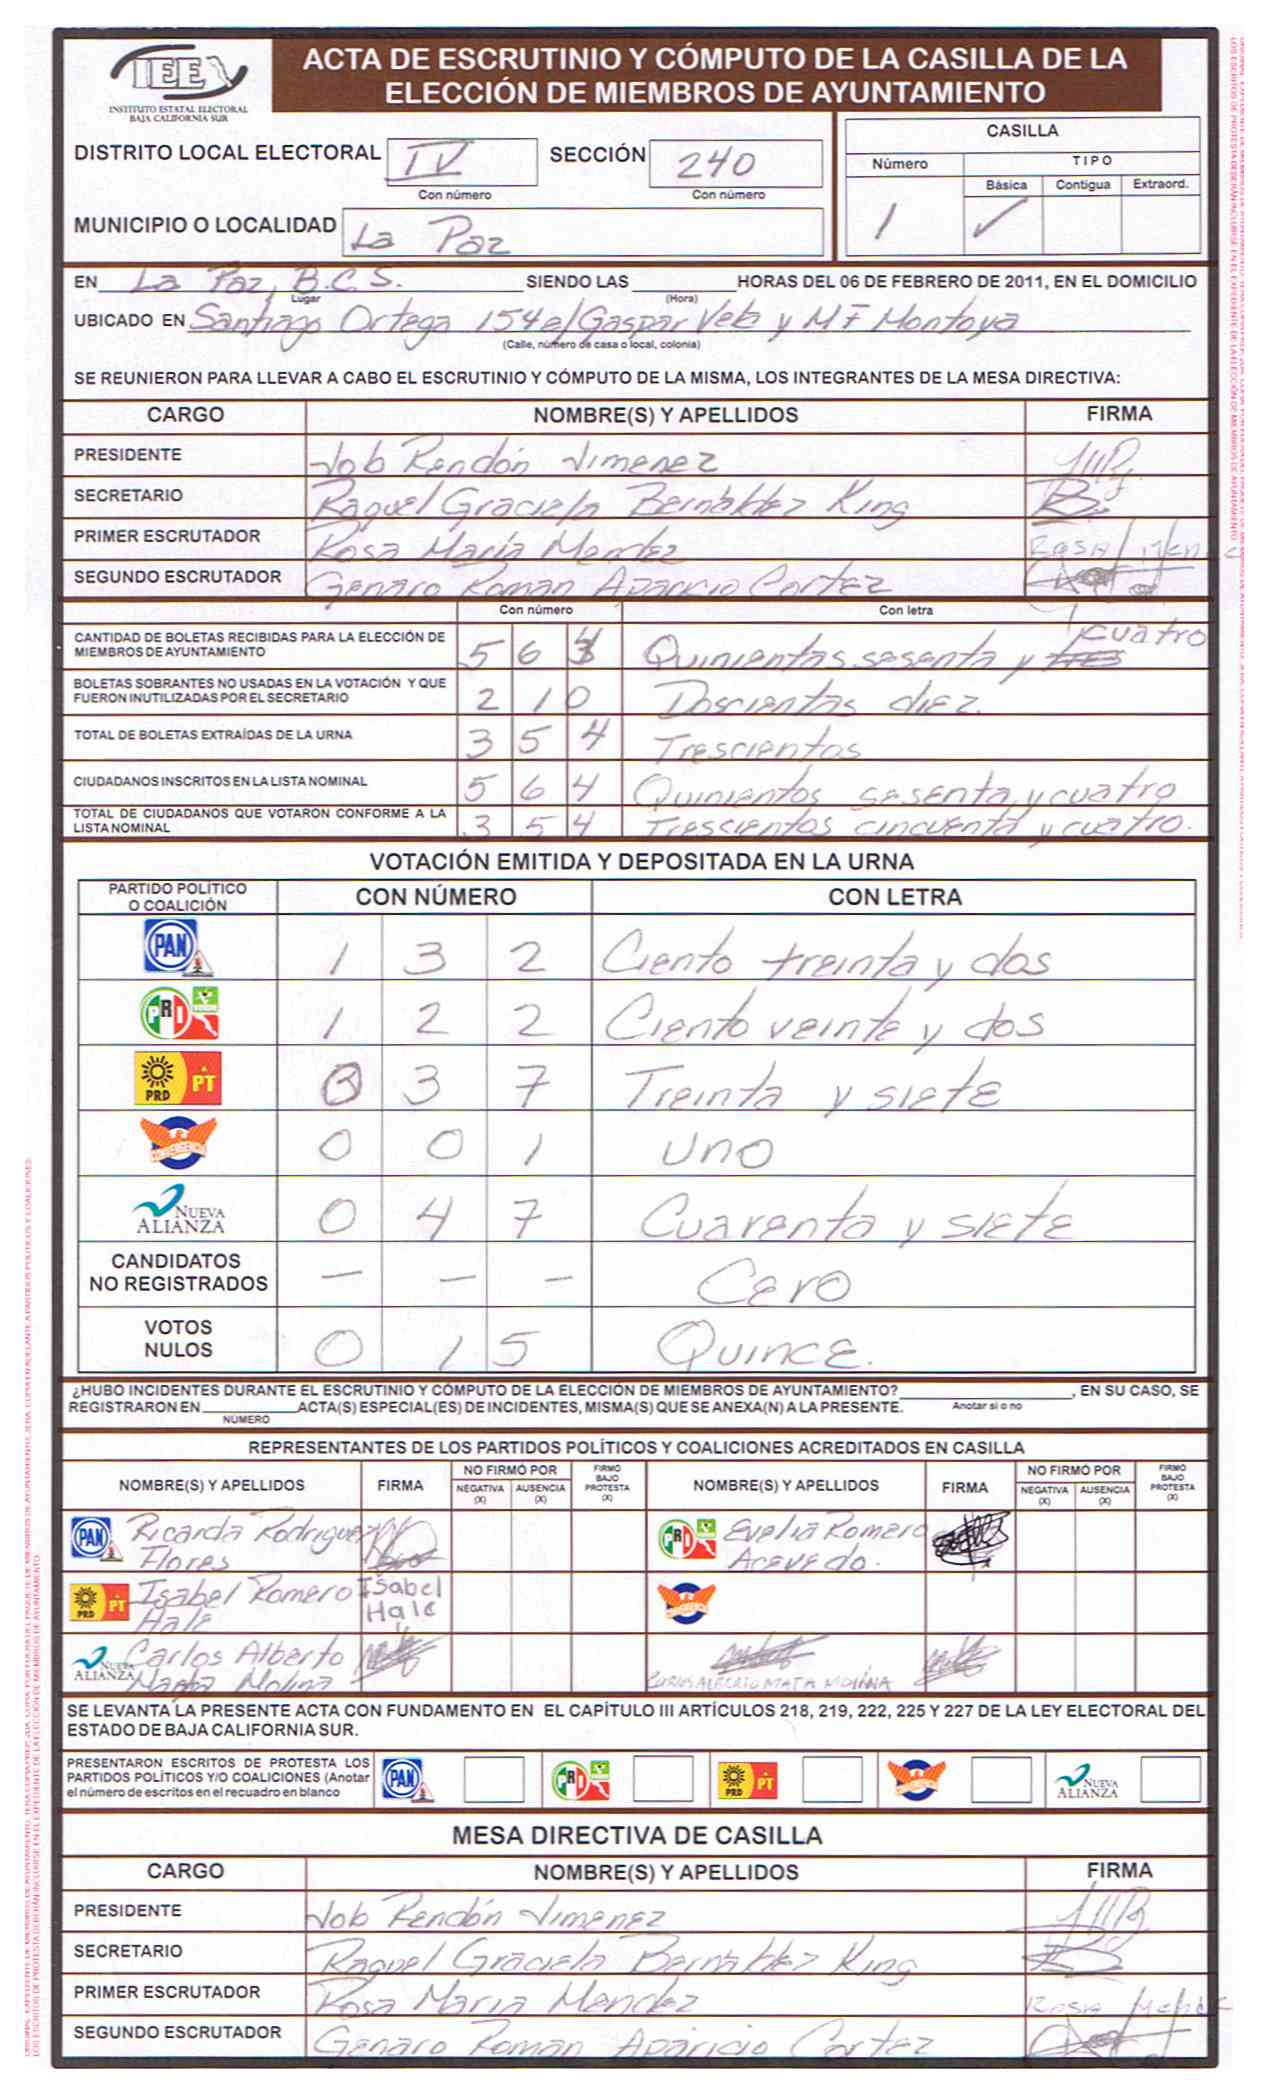 IEEX
INSTITUTO ESTATAL ELECTORAL
BAJA CALIFORNIA SUR
ACTA DE ESCRUTINIO Y CÓMPUTO DE LA CASILLA DE LA
ELECCIÓN DE MIEMBROS DE AYUNTAMIENTO
DISTRITO LOCAL ELECTORAL IV SECCIÓN 240
Con número Con número
MUNICIPIO O LOCALIDAD La Paz
CASILLA
Número TIPO
Básica Contigua Extraord.
1 ✓
EN La Paz, B.C.S. SIENDO LAS HORAS DEL 06 DE FEBRERO DE 2011, EN EL DOMICILIO
Lugar (Hora)
UBICADO EN Santiago Ortega 154 e/Gaspar Vela y MF Montoya
(Calle, número de casa o local, colonia)
SE REUNIERON PARA LLEVAR A CABO EL ESCRUTINIO Y CÓMPUTO DE LA MISMA, LOS INTEGRANTES DE LA MESA DIRECTIVA:
CARGO NOMBRE(S) Y APELLIDOS FIRMA
PRESIDENTE Job Rendón Jimenez
SECRETARIO Raquel Graciela Bernáldez King
PRIMER ESCRUTADOR Rosa María Mendez Rosa Mende
SEGUNDO ESCRUTADOR Genaro Roman Aparicio Cortez
Con número Con letra
CANTIDAD DE BOLETAS RECIBIDAS PARA LA ELECCIÓN DE
MIEMBROS DE AYUNTAMIENTO 5 6 4 Quinientas sesenta y tres cuatro
BOLETAS SOBRANTES NO USADAS EN LA VOTACIÓN Y QUE
FUERON INUTILIZADAS POR EL SECRETARIO 2 1 0 Doscientas diez.
TOTAL DE BOLETAS EXTRAÍDAS DE LA URNA 3 5 4 Trescientos
CIUDADANOS INSCRITOS EN LA LISTA NOMINAL 5 6 4 Quinientos sesenta y cuatro
TOTAL DE CIUDADANOS QUE VOTARON CONFORME A LA
LISTA NOMINAL 3 5 4 Trescientos cincuenta y cuatro.
VOTACIÓN EMITIDA Y DEPOSITADA EN LA URNA
PARTIDO POLÍTICO
O COALICIÓN CON NÚMERO CON LETRA
PAN 1 3 2 Ciento treinta y dos
PRI 1 2 2 Ciento veinte y dos
PRD PT 0 3 7 Treinta y siete
CONVERGENCIA 0 0 1 uno
NUEVA ALIANZA 0 4 7 Cuarenta y siete
CANDIDATOS
NO REGISTRADOS — — — Cero
VOTOS
NULOS 0 1 5 Quince.
¿HUBO INCIDENTES DURANTE EL ESCRUTINIO Y CÓMPUTO DE LA ELECCIÓN DE MIEMBROS DE AYUNTAMIENTO? , EN SU CASO, SE
REGISTRARON EN ACTA(S) ESPECIAL(ES) DE INCIDENTES, MISMA(S) QUE SE ANEXA(N) A LA PRESENTE. Anotar si o no
NÚMERO
REPRESENTANTES DE LOS PARTIDOS POLÍTICOS Y COALICIONES ACREDITADOS EN CASILLA
NOMBRE(S) Y APELLIDOS FIRMA NO FIRMÓ POR NEGATIVA (X) AUSENCIA (X) FIRMÓ BAJO PROTESTA (X) NOMBRE(S) Y APELLIDOS FIRMA NO FIRMÓ POR NEGATIVA (X) AUSENCIA (X) FIRMÓ BAJO PROTESTA (X)
PAN Ricarda Rodriguez PRI Evelia Romero
Flores Acevedo.
PRD PT Isabel Romero Isabel CONVERGENCIA
Hale Hale
NUEVA ALIANZA Carlos Alberto
Molina CARLOS ALBERTO MATA MOLINA
SE LEVANTA LA PRESENTE ACTA CON FUNDAMENTO EN EL CAPÍTULO III ARTÍCULOS 218, 219, 222, 225 Y 227 DE LA LEY ELECTORAL DEL
ESTADO DE BAJA CALIFORNIA SUR.
PRESENTARON ESCRITOS DE PROTESTA LOS
PARTIDOS POLÍTICOS Y/O COALICIONES (Anotar
el número de escritos en el recuadro en blanco
PAN PRI PRD PT CONVERGENCIA NUEVA ALIANZA
MESA DIRECTIVA DE CASILLA
CARGO NOMBRE(S) Y APELLIDOS FIRMA
PRESIDENTE Job Rendón Jimenez
SECRETARIO Raquel Graciela Bernáldez King
PRIMER ESCRUTADOR Rosa Maria Mendez Rosa Mende
SEGUNDO ESCRUTADOR Genaro Roman Aparicio Cortez